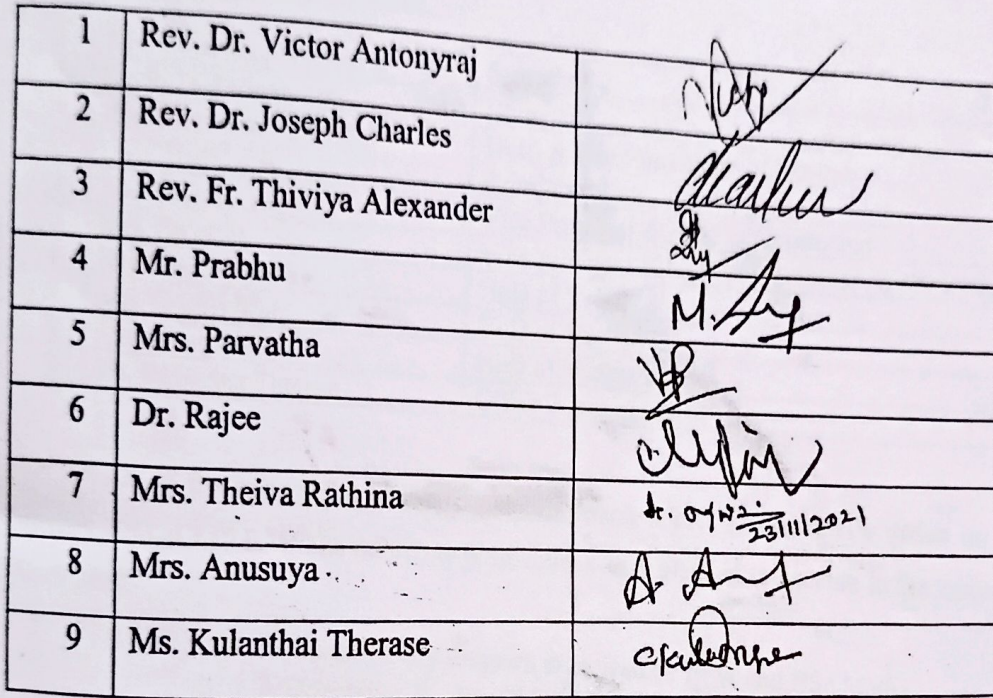 1 Rev. Dr. Victor Antonyraj
2 Rev. Dr. Joseph Charles
3 Rev. Fr. Thiviya Alexander
4 Mr. Prabhu
5 Mrs. Parvatha
6 Dr. Rajee
7 Mrs. Theiva Rathina
23/11/2021
8 Mrs. Anusuya
9 Ms. Kulanthai Therase